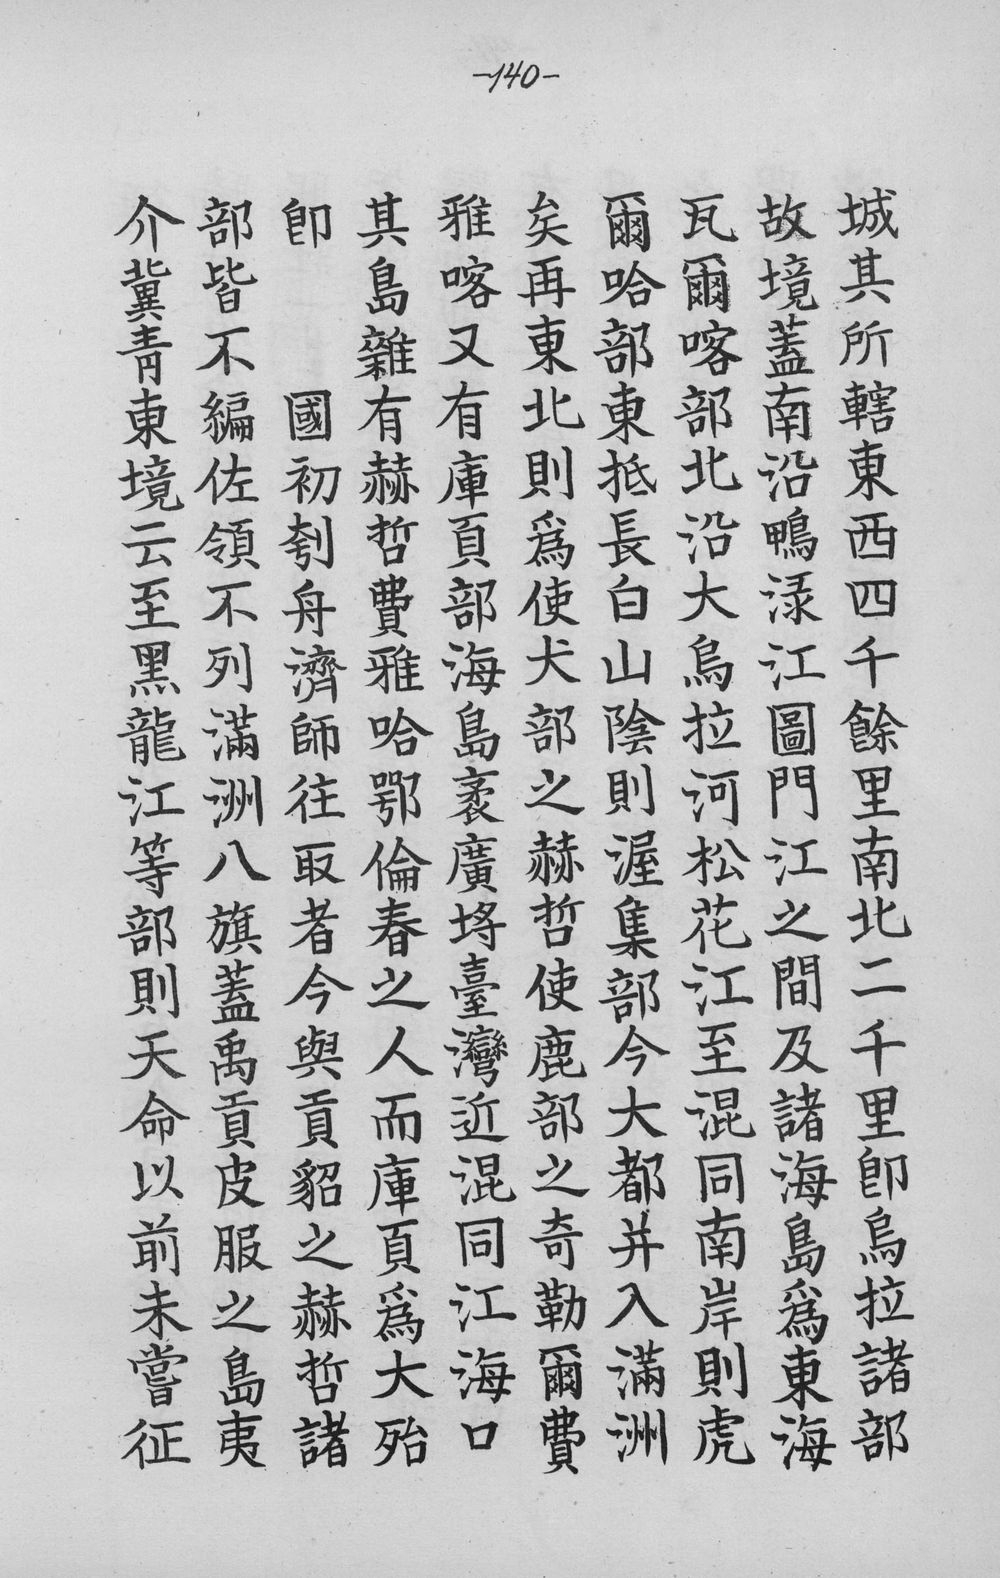 -140-
城其所轄東西四千餘里南北二千里卽烏拉諸部
故境蓋南沿鴨淥江圖門江之間及諸海島爲東海
瓦爾喀部北沿大烏拉河松花江至混同南岸則虎
爾哈部東抵長白山陰則渥集部今大都并入滿洲
矣再東北則爲使犬部之赫哲使鹿部之奇勒爾費
雅喀又有庫頁部海島袤廣埓臺灣近混同江海口
其島雜有赫哲費雅哈鄂倫春之人而庫頁爲大殆
卽　　國初刳舟濟師往取者今與貢貂之赫哲諸
部皆不編佐領不列滿洲八旗蓋禹貢皮服之島夷
介冀靑東境云至黑龍江等部則天命以前未嘗征